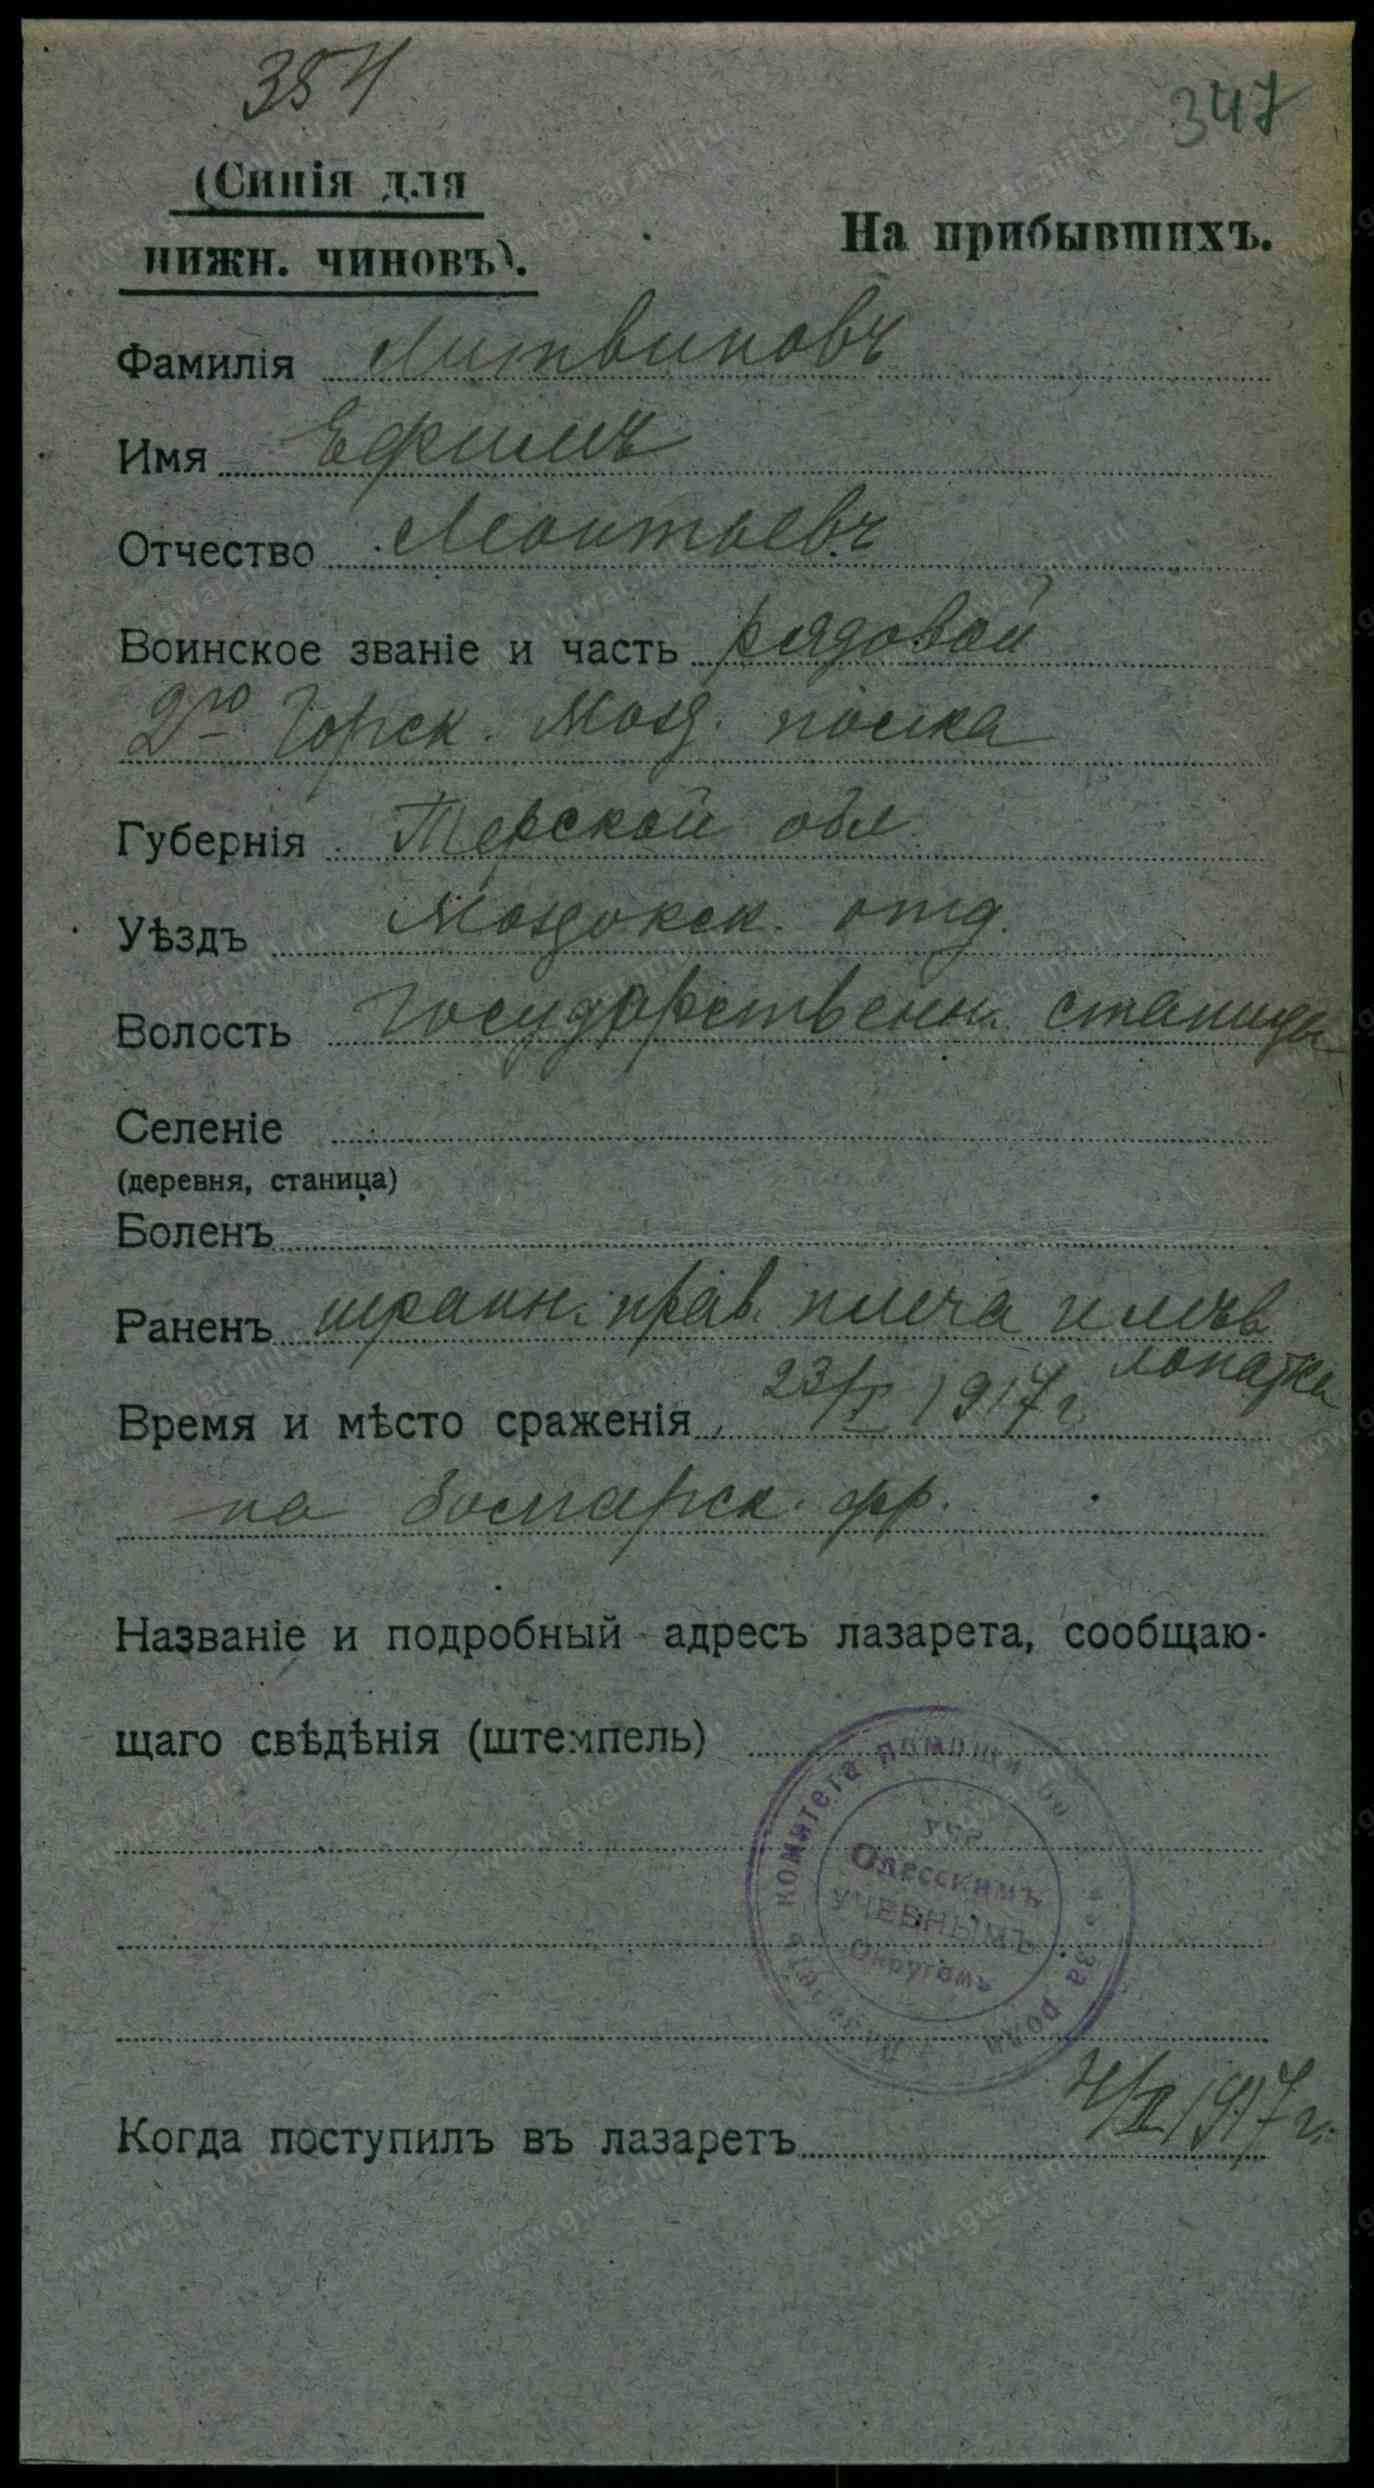 354
347
(Синія для
нижн. чиновъ).
На прибывшихъ.
Фамилія Литвиновъ
Имя Ефимъ
Отчество Леонтьевъ
Воинское званіе и часть рядовой
2го Горск. Мозд. полка
Губернія Терской обл.
Уѣздъ Моздокск. отд.
Волость Государственн. станицы
Селеніе
(деревня, станица)
Боленъ
Раненъ шрапн. прав. плеча и лѣв
лопатки
Время и мѣсто сраженія 23/I 1917 г.
на болгарск. фр.
Названіе и подробный адресъ лазарета, сообщаю-
щаго свѣдѣнія (штемпель)
Комитета помощи за
Одесскимъ
Учебнымъ
Округомъ
Когда поступилъ въ лазаретъ 4/II 1917 г.
www.gwar.mil.ru